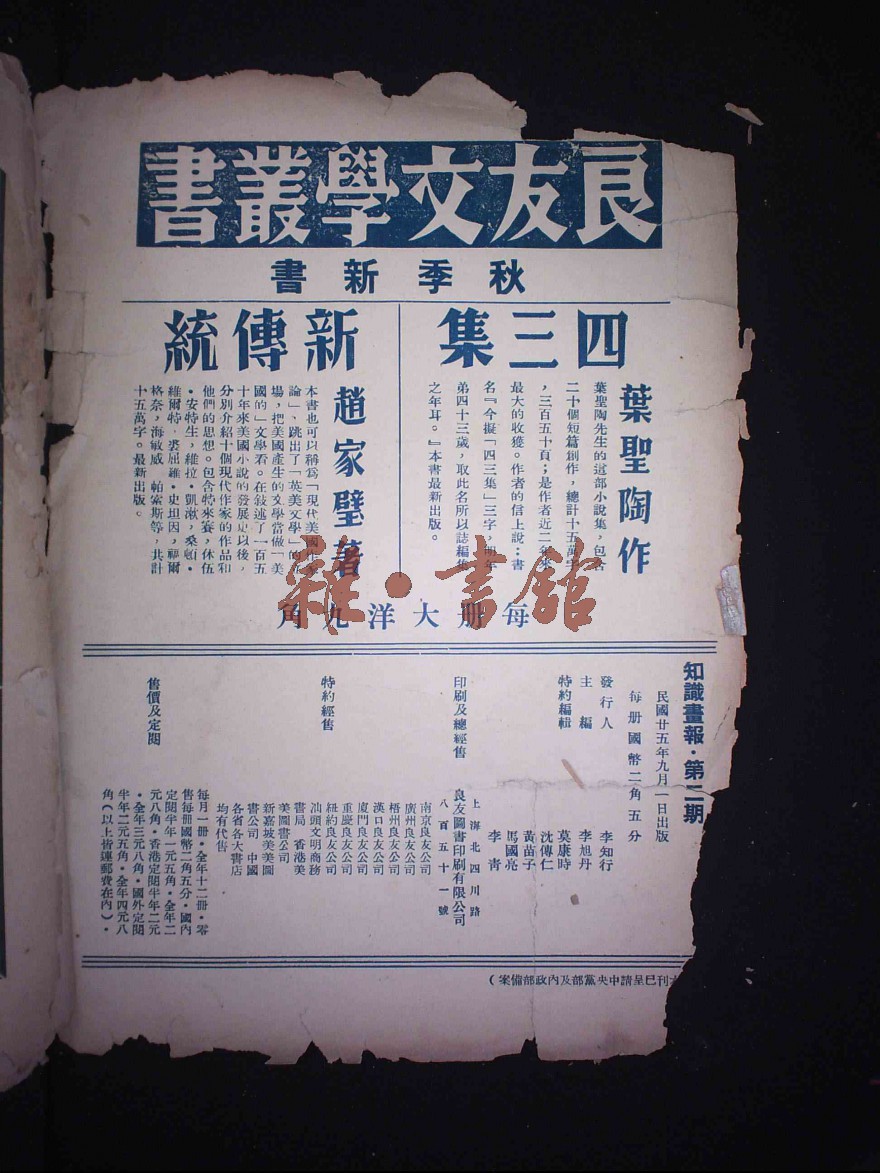 良友文學叢書
秋季新書
四三集
葉聖陶作
葉聖陶先生的這部小說集，包含
二十個短篇創作，總計十五萬字
，三百五十頁；是作者近二年來
最大的收獲。作者的信上說：書
名『今擬「四三集」三字，明年
弟四十三歲，取此名所以誌編集
之年耳。』本書最新出版。
新傳統
趙家璧著
本書也可以稱爲「現代美國作家
論」，跳出了「英美文學」的立
場，把美國產生的文學當做「美
國的」文學看。在敘述了一百五
十年來美國小說的發展史以後，
分別介紹十個現代作家的作品和
他們的思想。包含特來賽，休伍
・安特生，維拉・凱漱，桑頓・
維爾特，裘屈羅・史坦因，福爾
格奈，海敏威，帕索斯等，共計
十五萬字。最新出版。
每册大洋九角
雜・書館
知識畫報・第二期
民國廿五年九月一日出版
每册國幣二角五分
發行人 李知行
主編 李旭丹
特約編輯 莫康時
沈傳仁
黃苗子
馬國亮
李青
印刷及總經售
上海北四川路
良友圖書印刷有限公司
八百五十一號
特約經售
南京良友公司
廣州良友公司
梧州良友公司
漢口良友公司
廈門良友公司
重慶良友公司
紐約良友公司
汕頭文明商務
書局 香港美
美圖書公司
新嘉坡美美圖
書公司 中國
各省各大書店
均有代售
售價及定閱
每月一册・全年十二册・零
售每册國幣二角五分・國內
定閱半年一元五角・全年二
元八角・香港定閱半年二元
・全年三元八角・國外定閱
半年二元五角・全年四元八
角（以上皆連郵費在內）・
刊已呈請中央黨部及內政部備案）